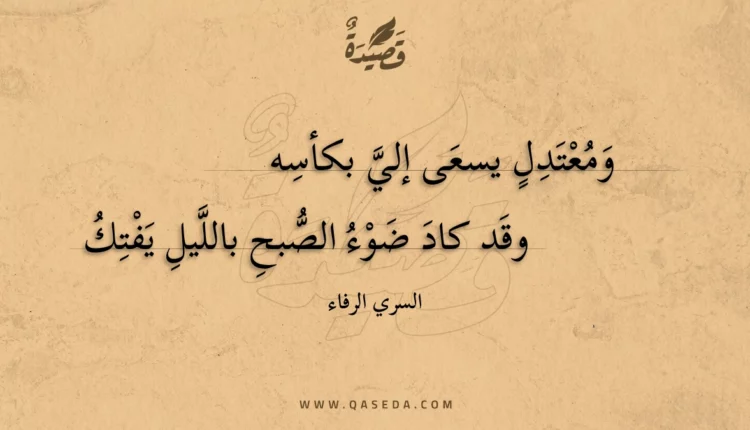 قَصِيْدَةٌ
وَمُعْتَدِلٍ يسعَى إليَّ بكأسِه
وقَد كادَ ضَوْءُ الصُّبحِ باللَّيلِ يَفْتِكُ
السري الرفاء
WWW.QASEDA.COM